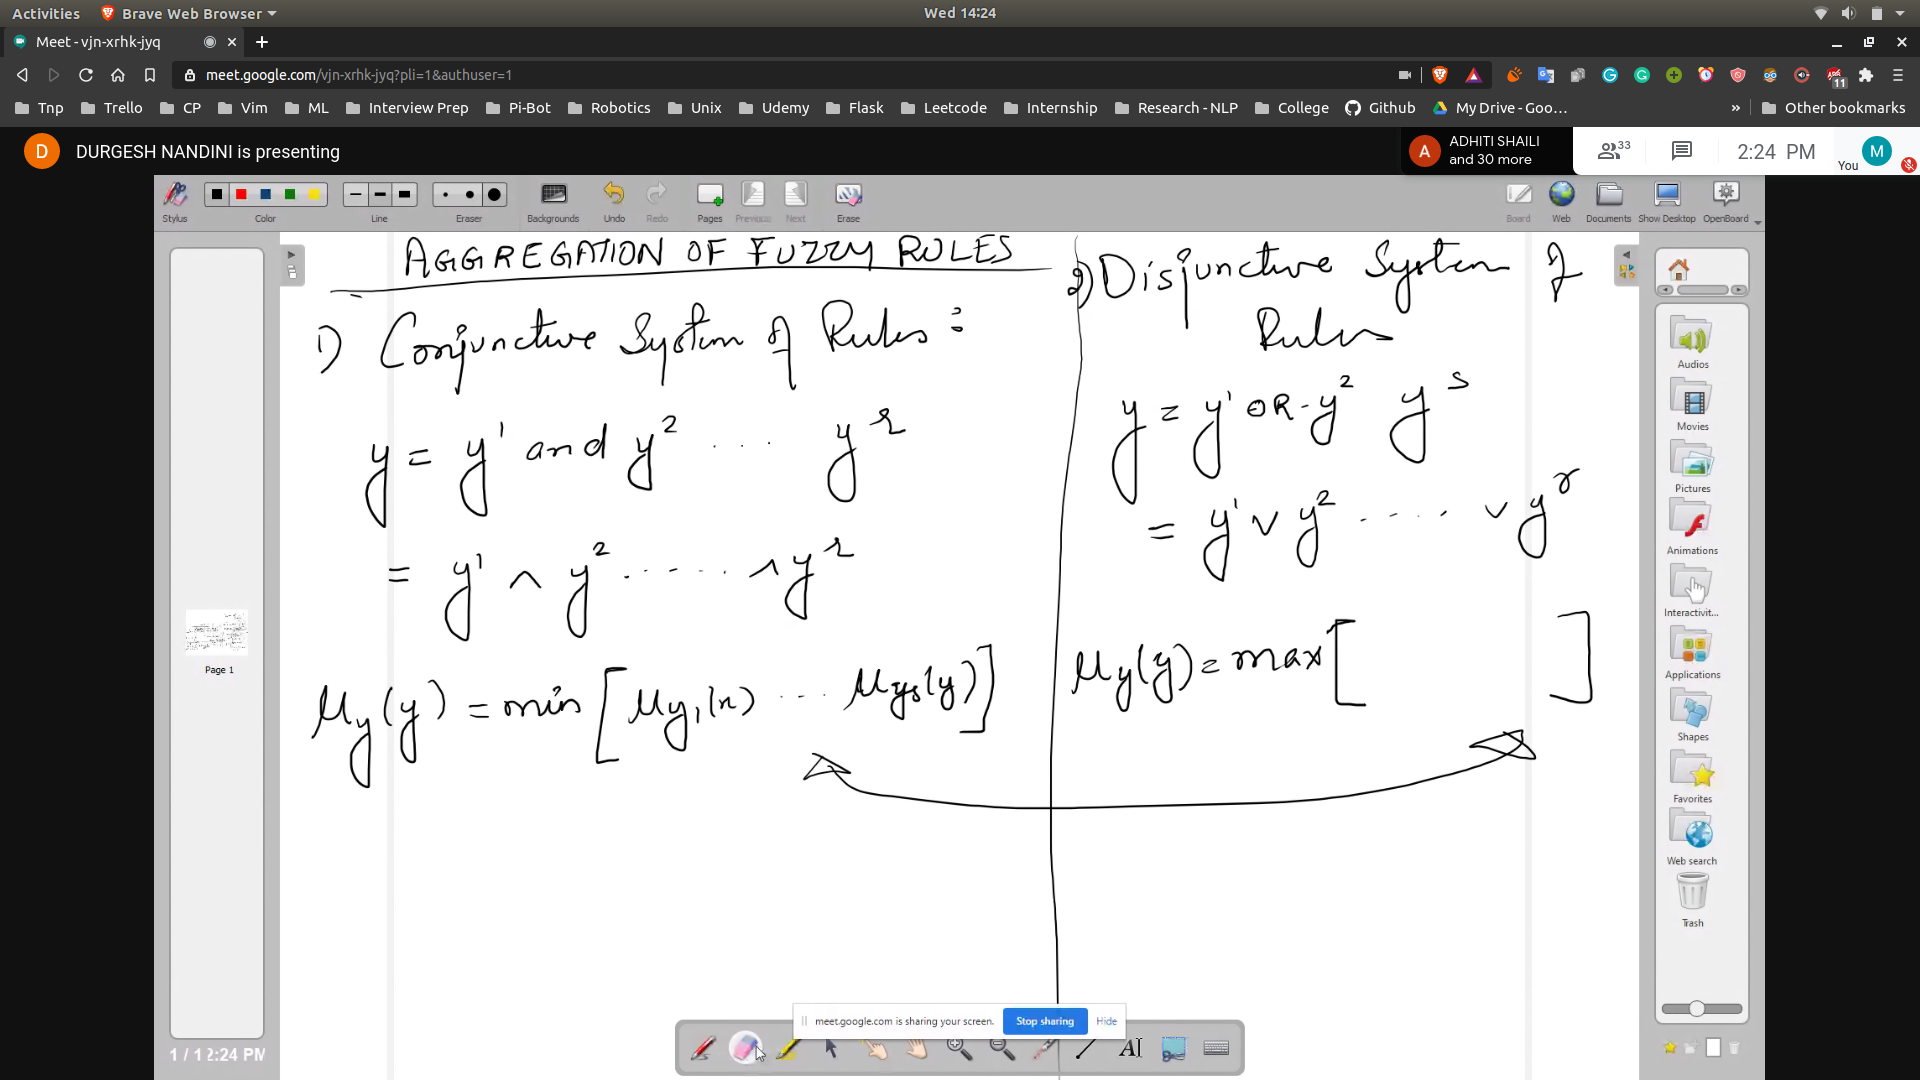 Activities Brave Web Browser Wed 14:24
Meet - vjn-xrhk-jyq
meet.google.com/vjn-xrhk-jyq?pli=1&authuser=1 11
Tnp Trello CP Vim ML Interview Prep Pi-Bot Robotics Unix Udemy Flask Leetcode Internship Research - NLP College Github My Drive - Goo... » Other bookmarks
D DURGESH NANDINI is presenting
A ADHITI SHAILI
and 30 more
33 2:24 PM You M
Stylus Color Line Eraser Backgrounds Undo Redo Pages Previous Next Erase Board Web Documents Show Desktop OpenBoard
AGGREGATION OF FUZZY RULES
1) Conjunctive System of Rules :
y = y¹ and y² ... y^r
= y¹ ∧ y² ...... ∧ y^r
μy(y) = min [μy₁(x) ... μys(y)]
2) Disjunctive System of
Rules
y = y¹ OR - y² y^s
= y¹ ∨ y² ..... ∨ y^r
μy(y) = max [ ]
Page 1
Audios
Movies
Pictures
Animations
Interactivit...
Applications
Shapes
Favorites
Web search
Trash
meet.google.com is sharing your screen. Stop sharing Hide
1 / 1 2:24 PM
AI